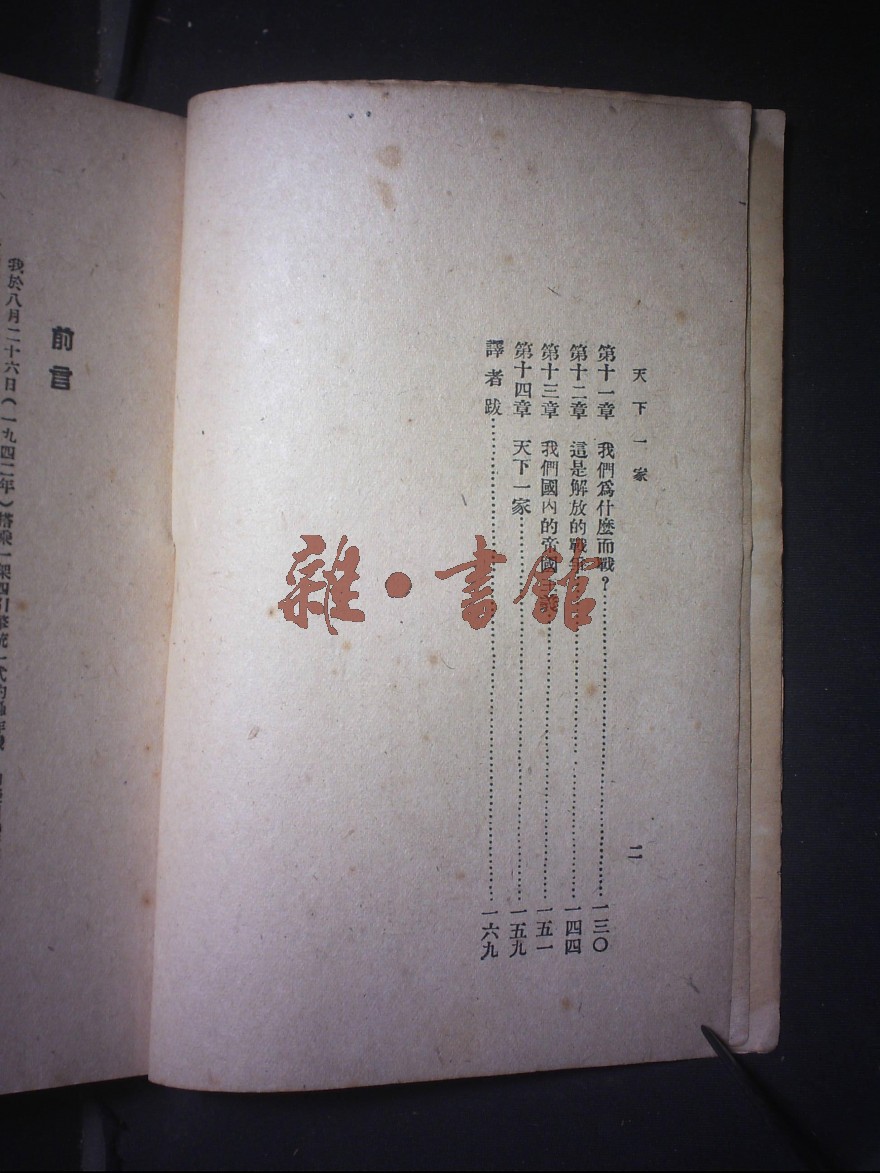 天下一家
二
第十一章 我們爲什麼而戰？……一三〇
第十二章 這是解放的戰爭……一四四
第十三章 我們國內的帝國主義……一五一
第十四章 天下一家……一五九
譯者跋……一六九
前言
我於八月二十六日（一九四二年）搭乘一架四引擎
雜·書館